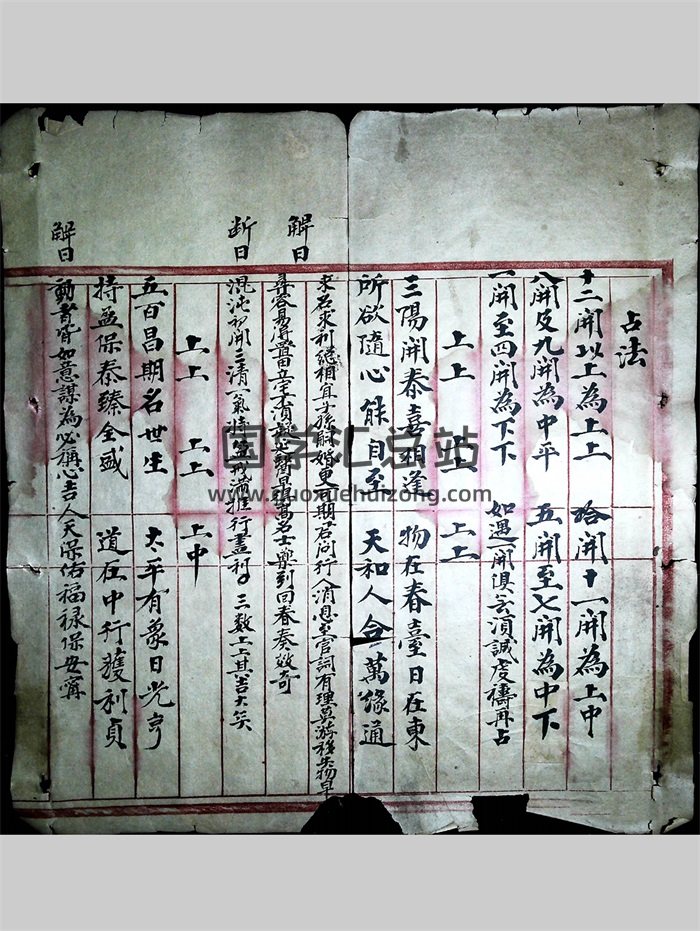 占法
十二開以上為上上　拾開十一開為上中
八開及九開為中平　五開至七開為中下
一開至四開為下下　如遇一開俱無須誠虔禱再占
上上　上上　上上
三陽開泰喜相逢　物在春臺日在東
所欲隨心能自至　天和人合萬緣通
解曰
求名求利總相宜　孫嗣婚更可期君問行人消息至官詞有理莫游移失物早
尋容易得
名士藥到回春奏效奇
断曰
混沌初開三清一氣持盈戒滿推行盡利
三數上上其吉大矣
上上　上上　上中
五百昌期名世生　太平有象日光亨
持盈保泰臻全盛　道在中行獲利貞
解曰
動者皆如意謀為必稱心吉人天保佑福祿保安寧
国学汇总站
www.guoxuehuizong.com